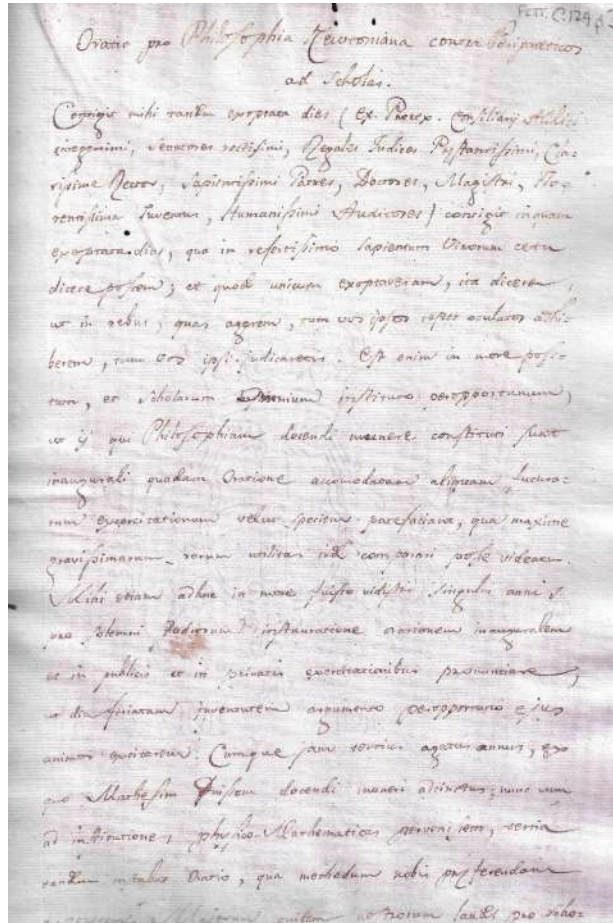 Fett. C. 124
Oratio pro Philosophia Newtoniana contra Peripateticos
ad Scholas.
Contigit mihi tandem exoptata dies (Ex. Praetex. Consiliarij
integerrimi, Senatores rectissimi, Regales Judices Praestantissimi, Cla-
rissime Rector, Sapientissimi Patres, Doctores, Magistri, Flo-
rentissima Juventus, Humanissimi Auditores) contigit inquam
exoptata dies, qua in refertissimo sapientum Virorum cetu
dicere possem; et quod unicum exoptaveram, ita dicerem,
ut in rebus, quas agerem, tum vos ipsos testes oculatos adhi-
berem, tum vos ipsi judicaretis. Est enim in more posi-
tum, et Scholarum instituto peropportunum,
ut ij qui Philosophiam docendi munere constituti sunt
inaugurali quadam Oratione accomodatam aliquam futura-
rum exercitationum velut speciem patefaciant, qua maxime
gravissimarum rerum utilitas comparari posse videatur.
Mihi etiam adhuc in more fuisse vidistis singulis annis
pro solemni studiorum instauratione orationem inauguralem
et in publicis et in privatis exercitationibus pronunciare,
ut diu feriatam juventutem argumento peropportuno ejus
animos excitarem. Cumque jam tertius agatur annus, ex
quo Mathesim docendi muneri adcinctus; nunc
ad institutiones physico-Mathematicas perveniam, tertia
tandem Oratio, qua methodum nobis praeferendam
nostrorum laudes pro